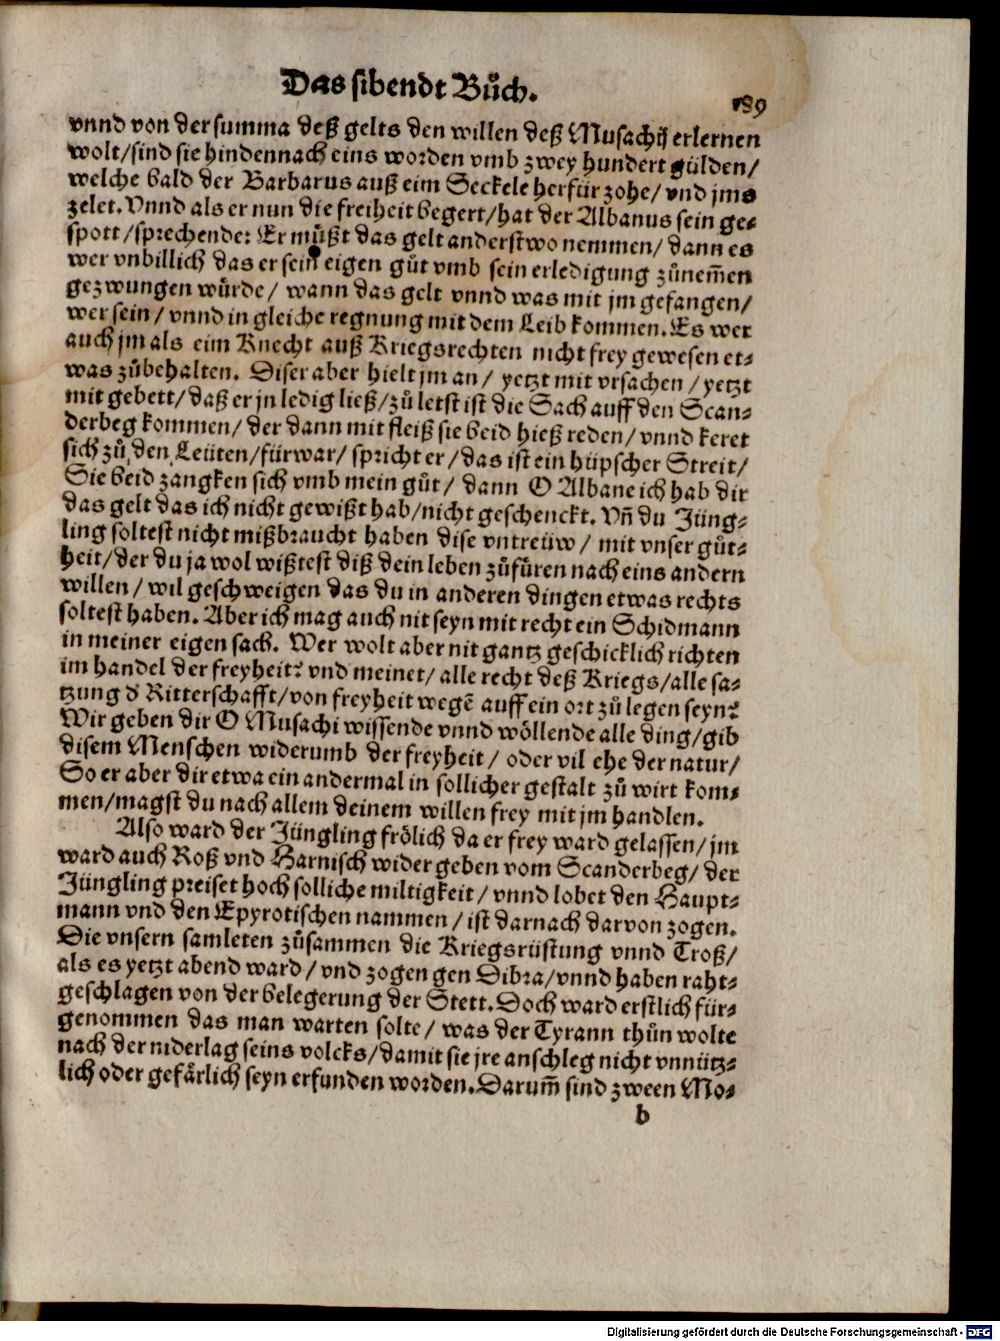 Das sibendt Bůch.
189
vnnd von der summa deß gelts den willen deß Musachij erlernen
wolt/sind sie hindennach eins worden vmb zwey hundert gülden/
welche bald der Barbarus auß eim Seckele herfür zohe/ vnd jms
zelet. Vnnd als er nun die freiheit begert/hat der Albanus sein ge-
spott/sprechende: Er můßt das gelt anderstwo nemmen/ dann es
wer vnbillich das er sein eigen gůt vmb sein erledigung zůnem̃en
gezwungen würde/ wann das gelt vnnd was mit jm gefangen/
wer sein/ vnnd in gleiche regnung mit dem Leib kommen. Es wer
auch jm als eim Knecht auß Kriegsrechten nicht frey gewesen et-
was zůbehalten. Diser aber hielt jm an/ yetzt mit vrsachen/ yetzt
mit gebett/ daß er jn ledig ließ/zů letst ist die Sach auff den Scan-
derbeg kommen/ der dann mit fleiß sie beid hieß reden/ vnnd keret
sich zů den Leüten/fürwar/ spricht er/das ist ein hüpscher Streit/
Sie beid zangken sich vmb mein gůt/ dann O Albane ich hab dir
das gelt das ich nicht gewißt hab/nicht geschenckt. Vñ du Jüng-
ling soltest nicht mißbraucht haben dise vntreüw/ mit vnser gůt-
heit/der du ja wol wißtest diß dein leben zůfüren nach eins andern
willen/ wil geschweigen das du in anderen dingen etwas rechts
soltest haben. Aber ich mag auch nit seyn mit recht ein Schidmann
in meiner eigen sach. Wer wolt aber nit gantz geschicklich richten
im handel der freyheit? vnd meinet/ alle recht deß Kriegs/alle sa-
tzung d' Ritterschafft/von freyheit wegẽ auff ein ort zů legen seyn?
Wir geben dir O Musachi wissende vnnd wöllende alle ding/gib
disem Menschen widerumb der freyheit/ oder vil ehe der natur/
So er aber dir etwa ein andermal in sollicher gestalt zů wirt kom-
men/magst du nach allem deinem willen frey mit jm handlen.
Also ward der Jüngling frölich da er frey ward gelassen/ jm
ward auch Roß vnd Harnisch wider geben vom Scanderbeg/ der
Jüngling preiset hoch solliche miltigkeit/ vnnd lobet den Haupt-
mann vnd den Epyrotischen nammen/ ist darnach darvon zogen.
Die vnsern samleten zůsammen die Kriegsrüstung vnnd Troß/
als es yetzt abend ward/ vnd zogen gen Dibra/vnnd haben raht-
geschlagen von der belegerung der Stett. Doch ward erstlich für-
genommen das man warten solte/ was der Tyrann thůn wolte
nach der niderlag seins volcks/damit sie jre anschleg nicht vnnütz-
lich oder gefårlich seyn erfunden worden. Darum̃ sind zween Mo-
b
Digitalisierung gefördert durch die Deutsche Forschungsgemeinschaft - DFG